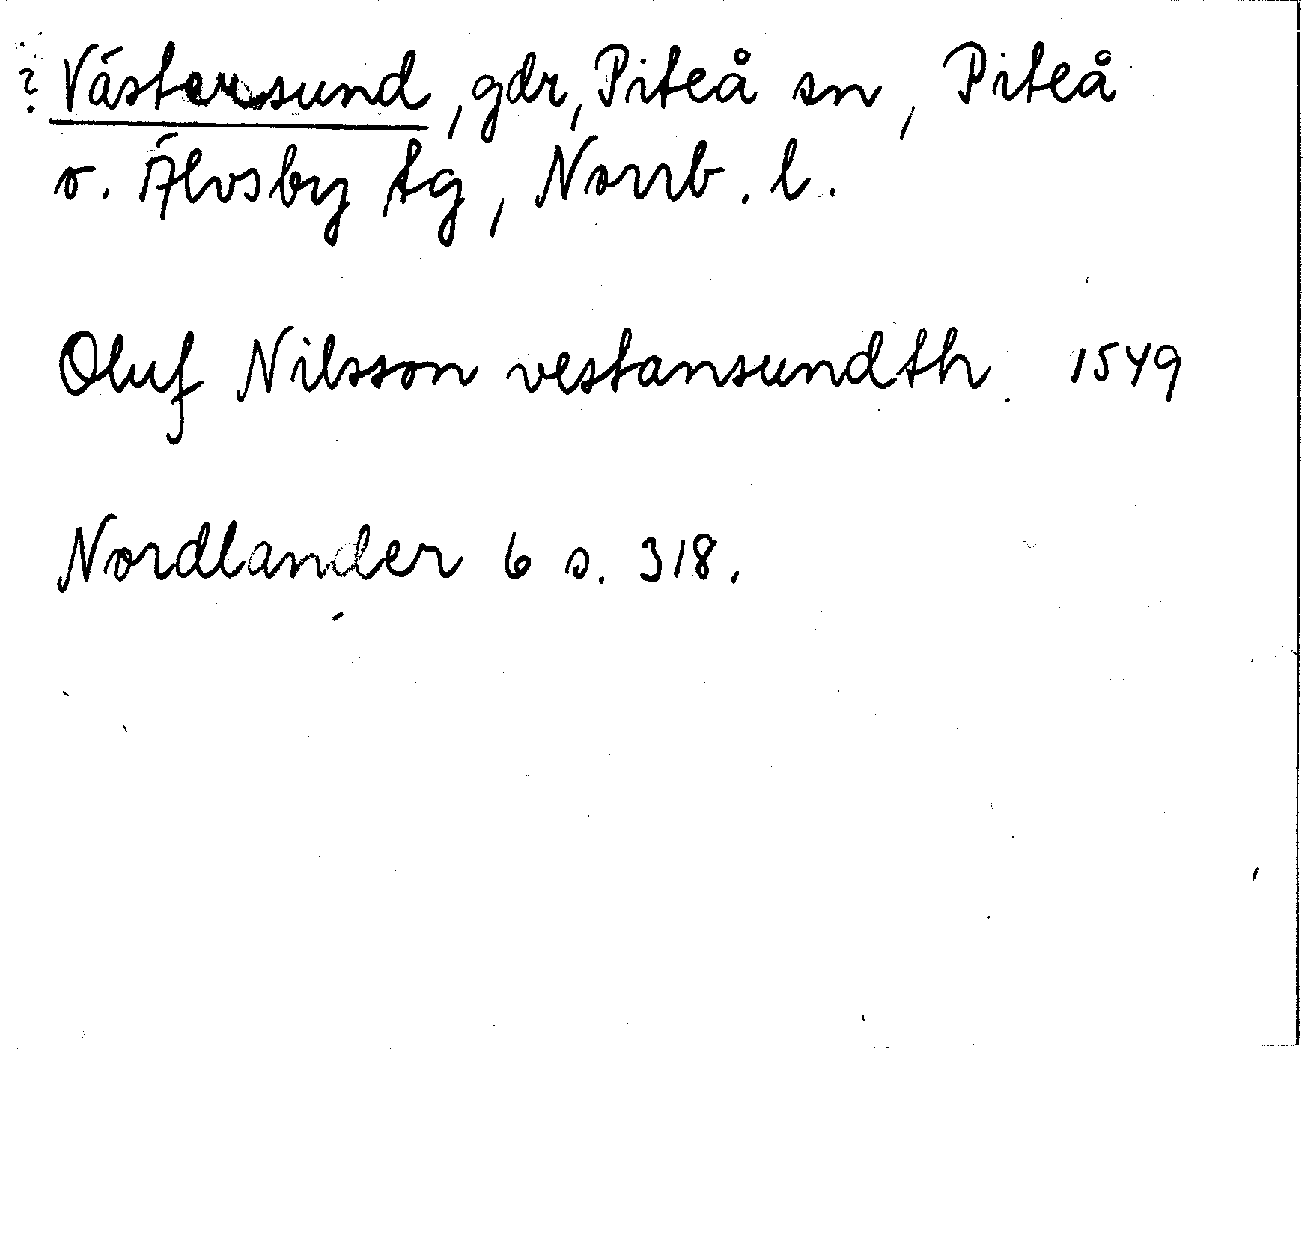 ? Västersund, gdr, Piteå sn, Piteå
o. Älvsby tg, Norrb. l.
Oluf Nilsson vestansundth 1549
Nordlander 6 s. 318.